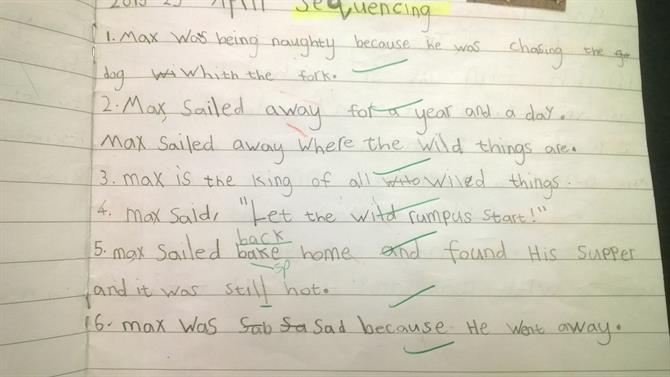 2015 23 April Sequencing
1. Max was being naughty because he was chasing the go
dog wi whith the fork.
2. Max sailed away for a year and a day.
Max sailed away where the wild things are.
3. max is the king of all wito wiled things.
4. max said, "Let the wild rumpus start!"
back
5. max sailed bake home and found His supper
sp
and it was still hot.
6. max was Sab Sa Sad because He went away.